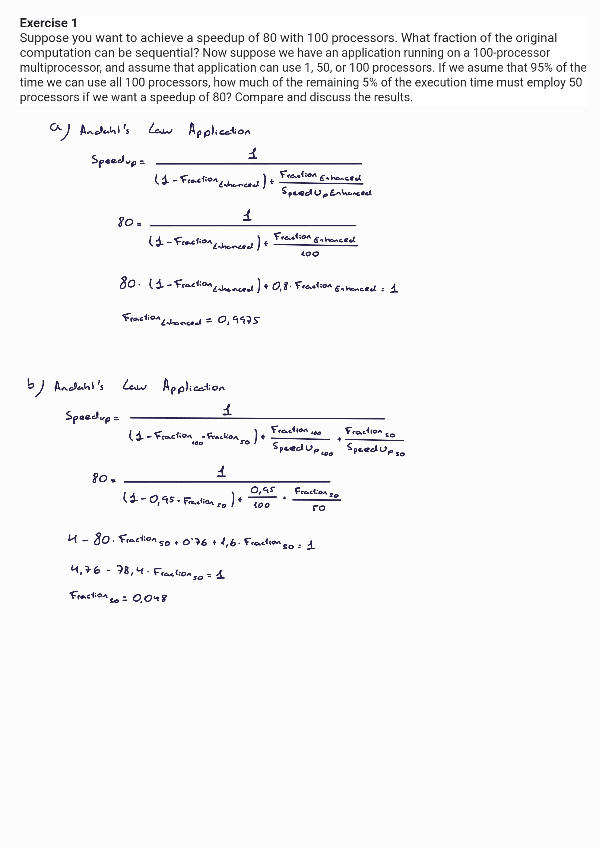 Exercise 1
Suppose you want to achieve a speedup of 80 with 100 processors. What fraction of the original
computation can be sequential? Now suppose we have an application running on a 100-processor
multiprocessor, and assume that application can use 1, 50, or 100 processors. If we asume that 95% of the
time we can use all 100 processors, how much of the remaining 5% of the execution time must employ 50
processors if we want a speedup of 80? Compare and discuss the results.
a) Andahl's Law Application
Speedup = 1 / ((1 - Fraction Enhanced) + Fraction Enhanced / SpeedUp Enhanced)
80 = 1 / ((1 - Fraction Enhanced) + Fraction Enhanced / 100)
80 · (1 - Fraction Enhanced) + 0,8 · Fraction Enhanced = 1
Fraction Enhanced = 0,9975
b) Andahl's Law Application
Speedup = 1 / ((1 - Fraction 100 - Fraction 50) + Fraction 100 / SpeedUp 100 + Fraction 50 / SpeedUp 50)
80 = 1 / ((1 - 0,95 - Fraction 50) + 0,95 / 100 + Fraction 50 / 50)
4 - 80 · Fraction 50 + 0'76 + 1,6 · Fraction 50 = 1
4,76 - 78,4 · Fraction 50 = 1
Fraction 50 = 0,048